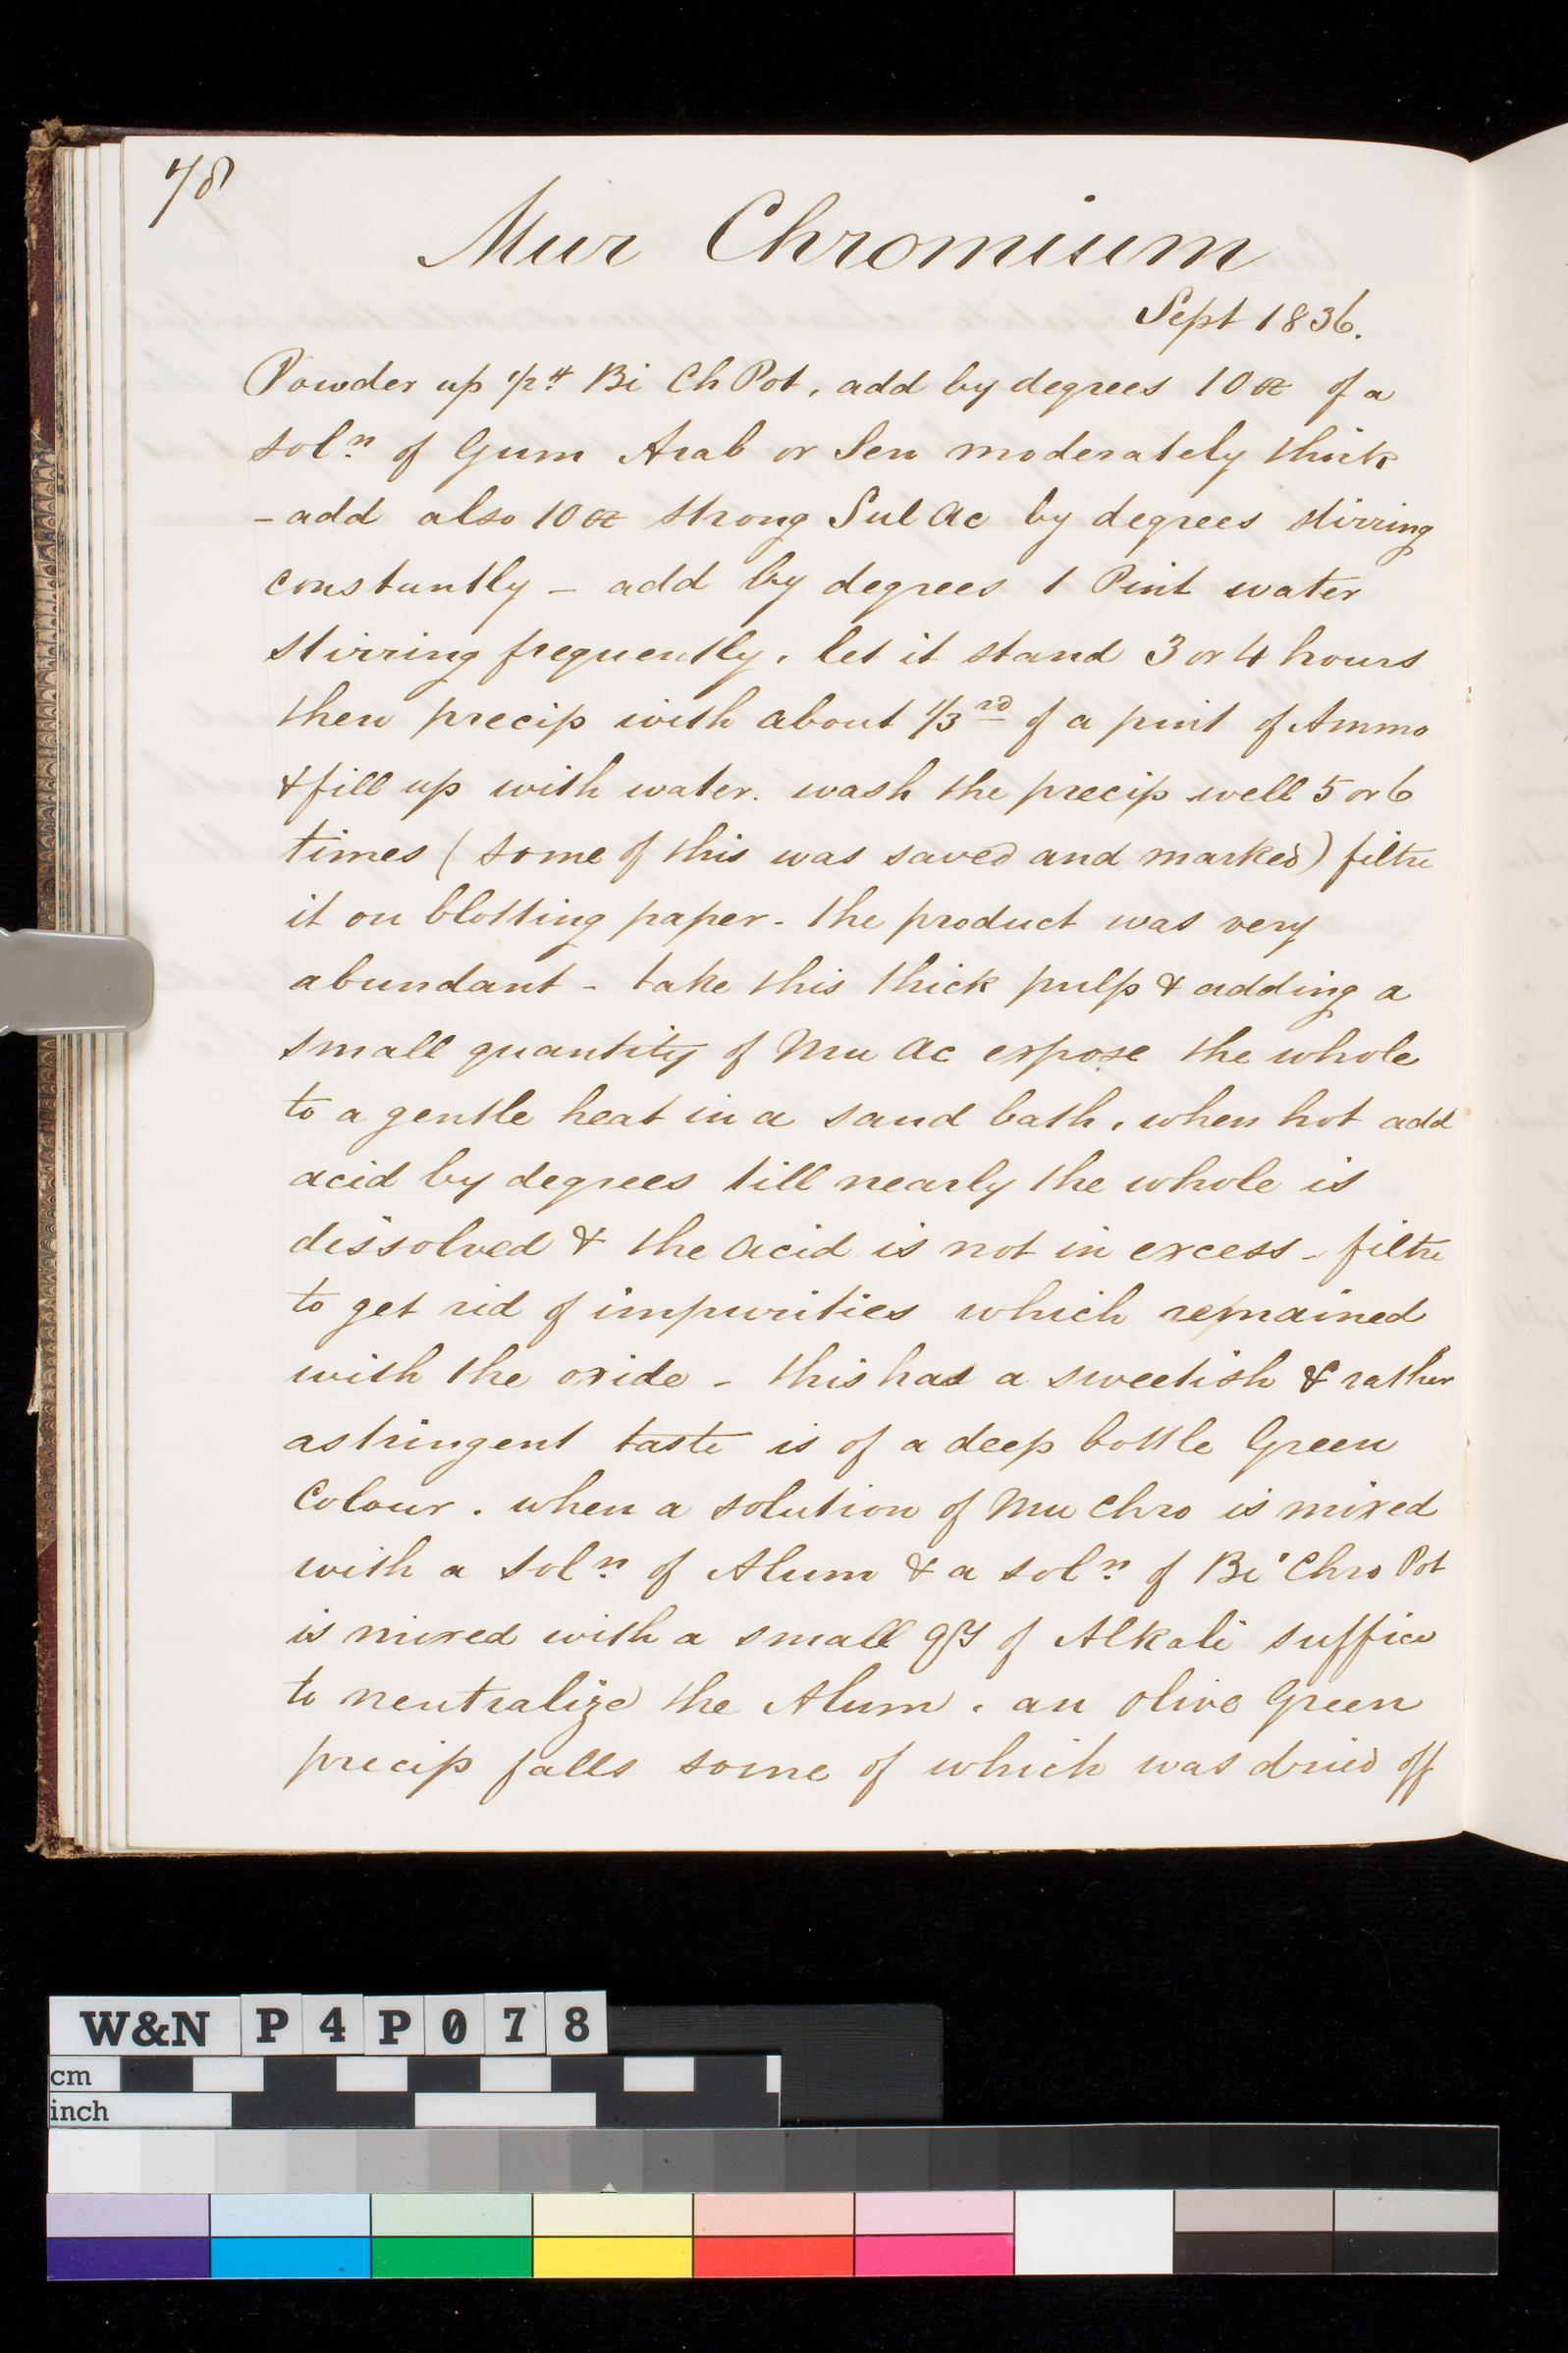 78
Mur Chromium
Sept 1836.
Powder up 1/2 # Bi Ch Pot, add by degrees 10 oz of a
soln. of Gum Arab or Sen moderately thick
- add also 10 oz strong Sul Ac by degrees stirring
constantly - add by degrees 1 Pint water
stirring frequently, let it stand 3 or 4 hours
then precip with about 1/3rd of a pint of Ammo
& fill up with water. wash the precip well 5 or 6
times (some of this was saved and marked) filtre
it on blotting paper - the product was very
abundant - take this thick pulp & adding a
small quantity of Mu Ac expose the whole
to a gentle heat in a sand bath, when hot add
acid by degrees till nearly the whole is
dissolved & the acid is not in excess - filtre
to get rid of impurities which remained
with the oxide - this has a sweetish & rather
astringent taste is of a deep bottle Green
Colour. when a solution of Mu Chro is mixed
with a soln. of Alum & a soln. of Bi Chro Pot
is mixed with a small qty of Alkali suffice
to neutralize the Alum, an olive Green
precip falls some of which was dried off
W&N P4P078
cm
inch